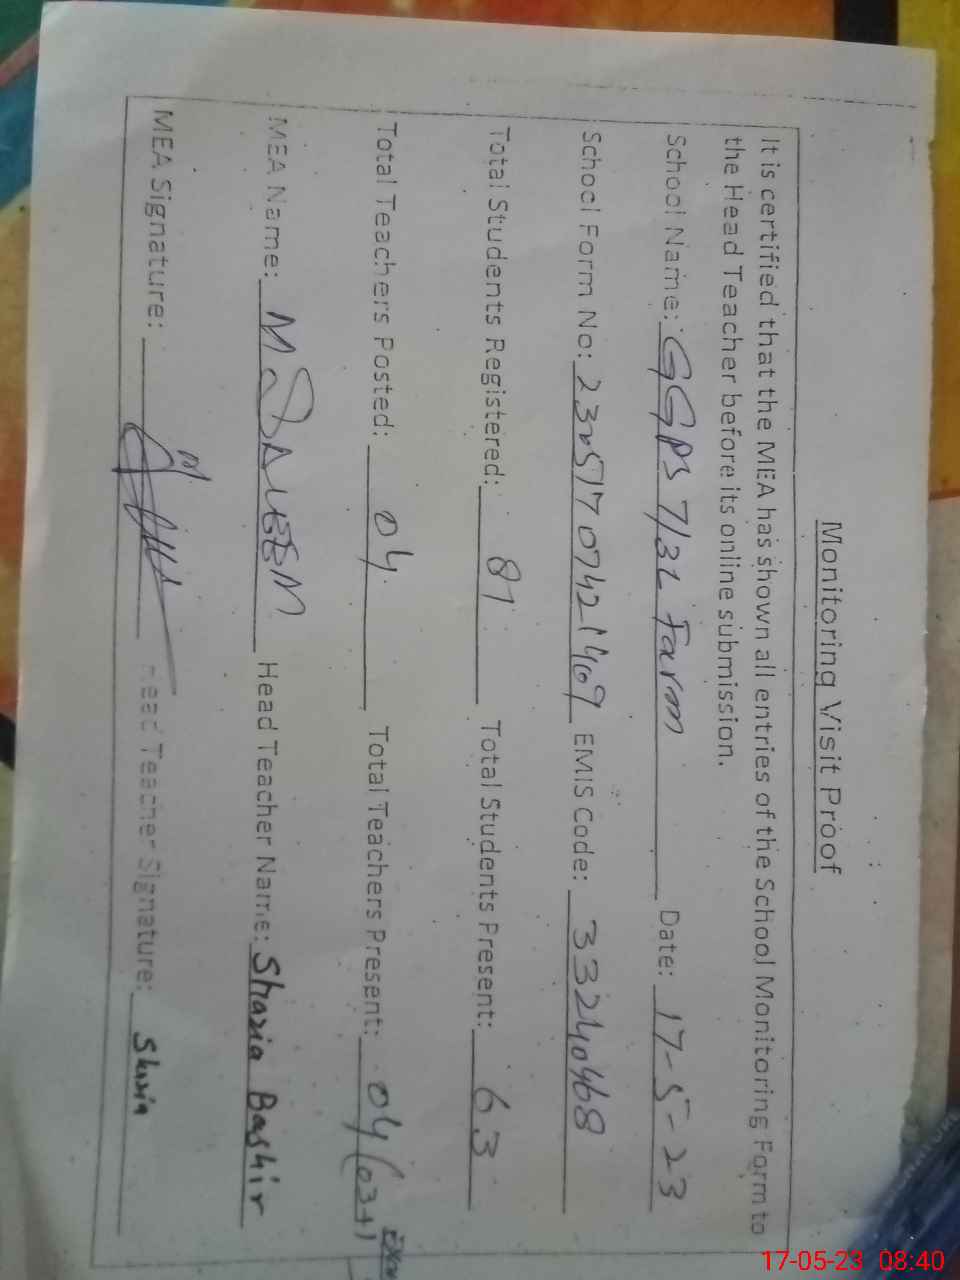 Monitoring Visit Proof
It is certified that the MEA has shown all entries of the School Monitoring Form to
the Head Teacher before its online submission.
School Name: GGPS 7/32 Farm Date: 17-5-23
School Form No: EMIS Code: 33240468
Total Students Registered: 81 Total Students Present: 63
Total Teachers Posted: 04 Total Teachers Present: 04 (03+1
MEA Name: Head Teacher Name: Shazia Bashir
MEA Signature: Head Teacher Signature: Shazia
17-05-23 08:40